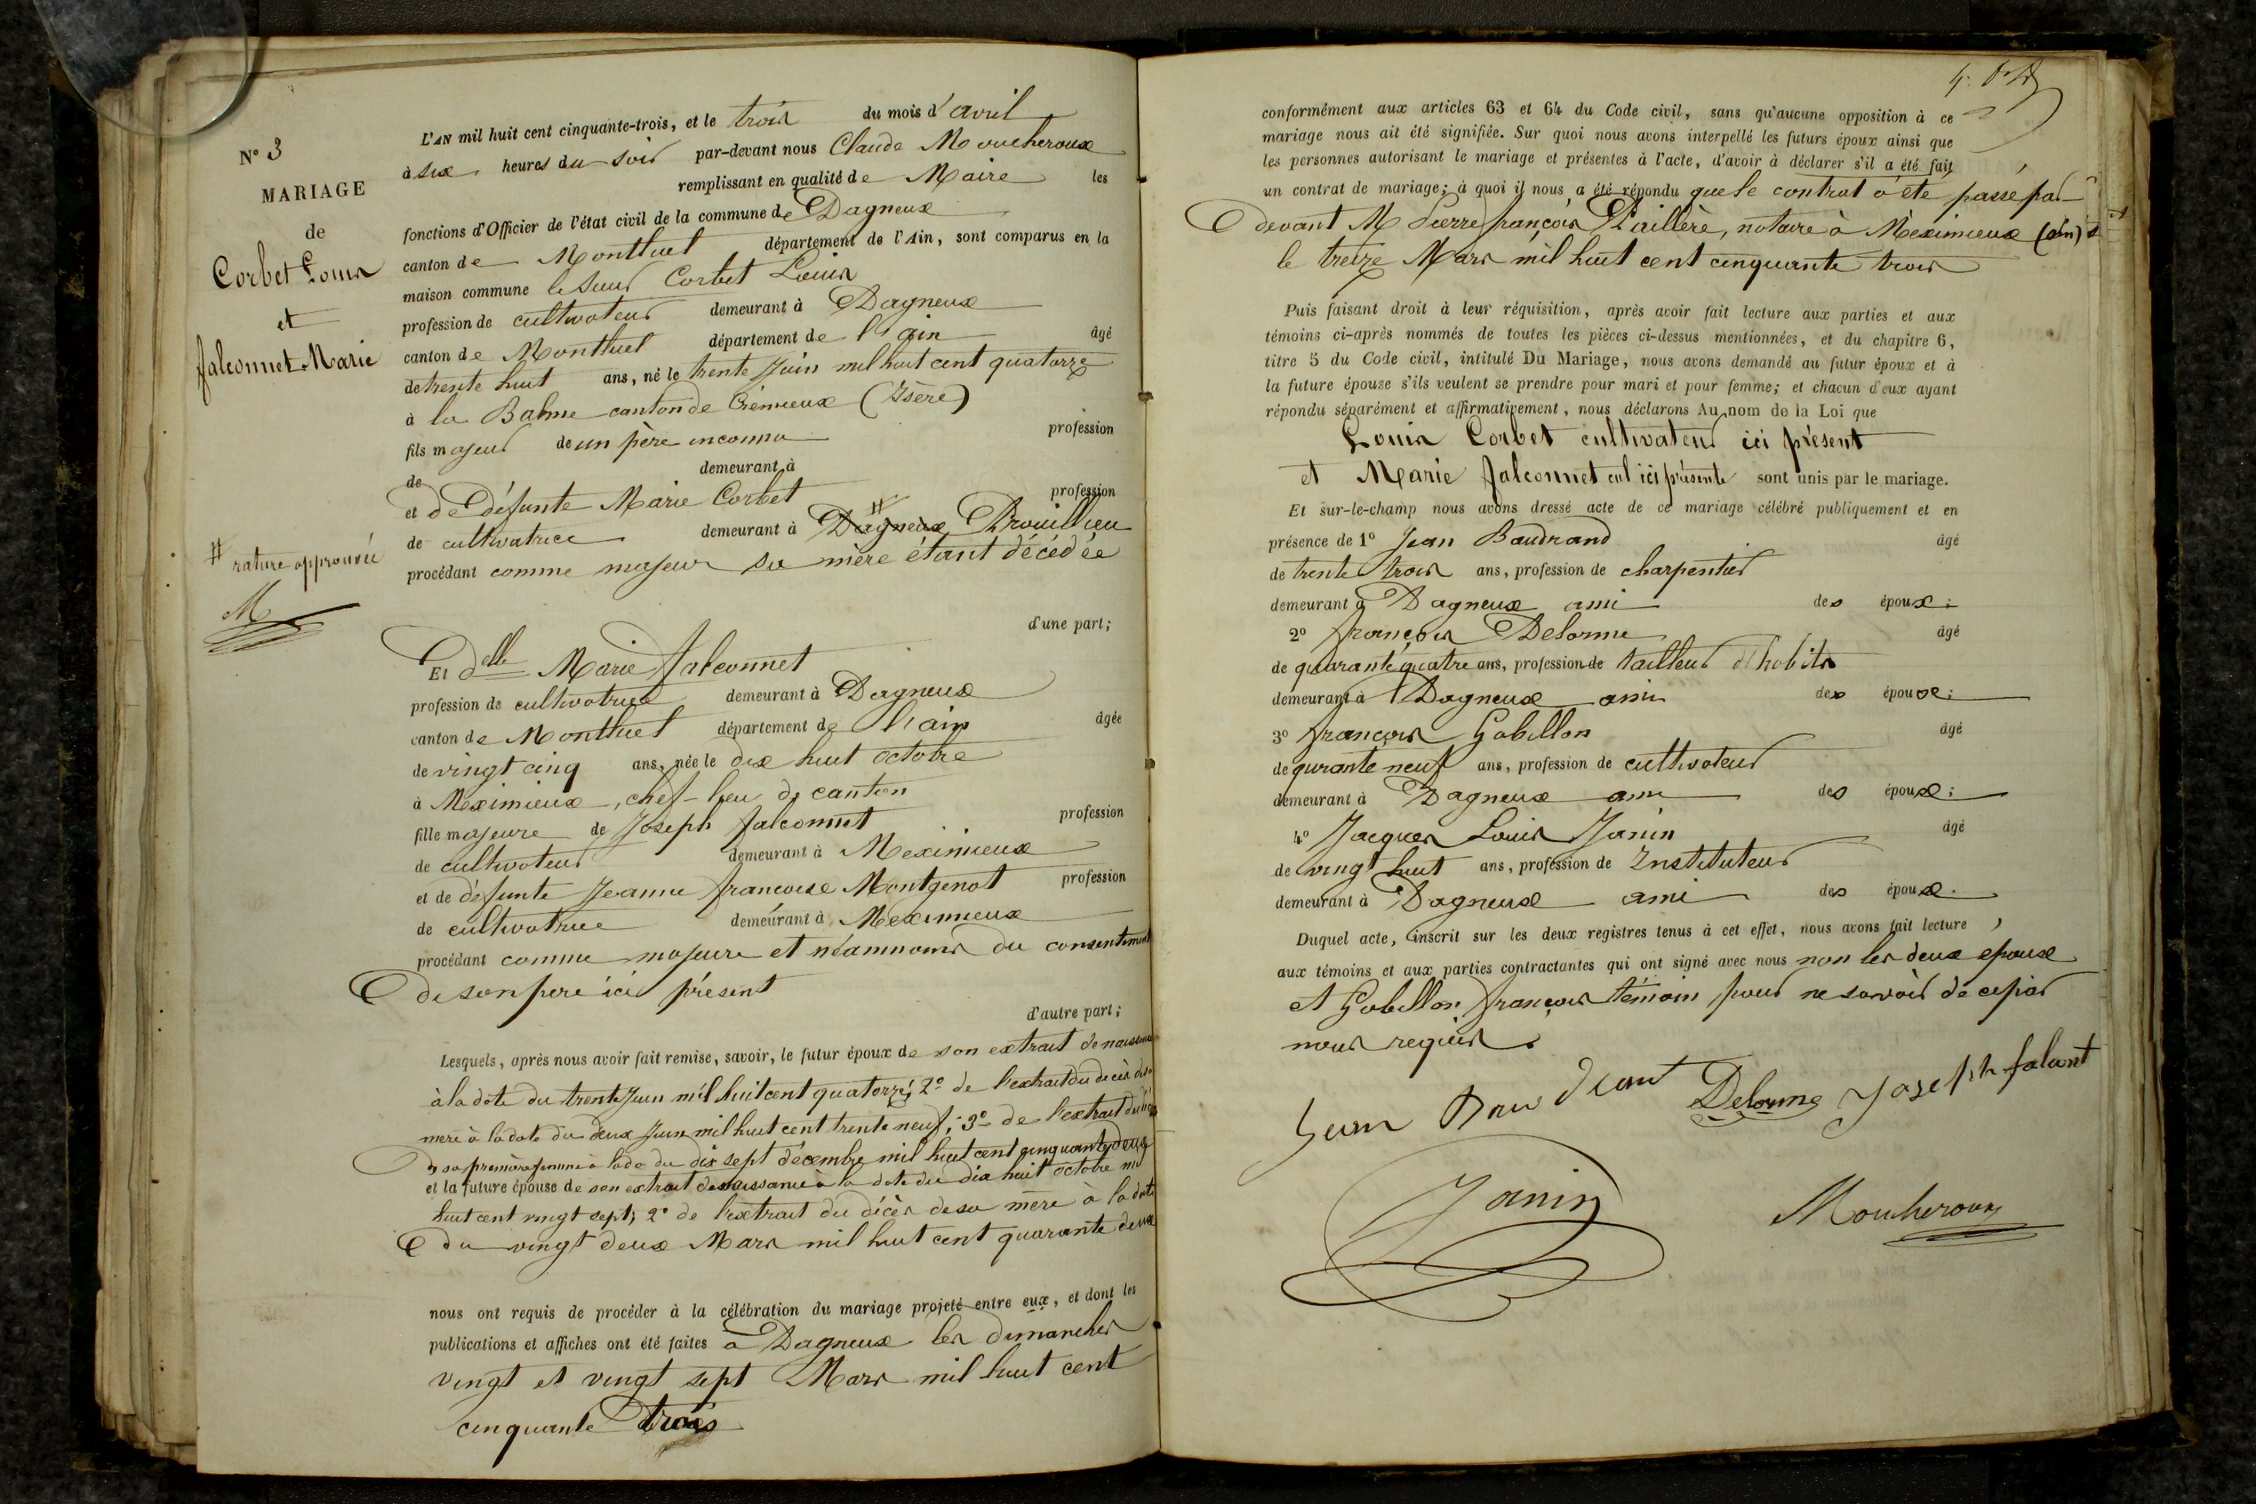 N° 3
MARIAGE
de
Corbet Louis
et
falconnet Marie
# rature approuvée
M
L'AN mil huit cent cinquante-trois, et le trois du mois d'avril
à six heures du soir par-devant nous Claude Moucheroux
remplissant en qualité de Maire les
fonctions d'Officier de l'état civil de la commune de Dagneux
canton de Montluel département de l'Ain, sont comparus en la
maison commune le sieur Corbet Louis
profession de cultivateur demeurant à Dagneux
canton de Montluel département de l'ain âgé
de trente huit ans, né le trente Juin mil huit cent quatorze
à la Balme canton de Crémieux (Isère)
fils majeur de un père inconnu profession
de demeurant à
et de Défunte Marie Corbet profession
de cultivatrice demeurant à Dagneux # Brouillieu
procédant comme majeur sa mère étant décédée
d'une part;
Et delle Marie falconnet
profession de cultivatrice demeurant à Dagneux
canton de Montluel département de l'ain âgée
de vingt cinq ans, née le dix huit octobre
à Meximieux, chef-lieu de canton
fille majeure de Joseph falconnet profession
de cultivateur demeurant à Meximieux
et de défunte Jeanne francoise Montgenot profession
de cultivatrice demeurant à Meximieux
procédant comme majeure et néamnoins du consentement
de son pere ici présent
d'autre part;
Lesquels, après nous avoir fait remise, savoir, le futur époux de son extrait de naissance
à la date du trente Juin mil huit cent quatorze; 2° de l'extrait du décès de sa
mere à la date du deux Juin mil huit cent trente neuf; 3° de l'extrait du décès
de sa première femme à la date du dix sept décembre mil huit cent cinquante deux
et la future épouse de son extrait de naissance à la date du dix huit octobre mil
huit cent vingt sept; 2° de l'extrait du décès de sa mère à la date
du vingt deux Mars mil huit cent quarante deux
nous ont requis de procéder à la célébration du mariage projeté entre eux, et dont les
publications et affiches ont été faites à Dagneux les dimanches
vingt et vingt sept Mars mil huit cent
cinquante trois
conformément aux articles 63 et 64 du Code civil, sans qu'aucune opposition à ce
mariage nous ait été signifiée. Sur quoi nous avons interpellé les futurs époux ainsi que
les personnes autorisant le mariage et présentes à l'acte, d'avoir à déclarer s'il a été fait
un contrat de mariage; à quoi il nous a été répondu que le contrat a été passé par
devant M Pierre françois Paillère, notaire à Meximieux (ain)
le treize Mars mil huit cent cinquante trois
Puis faisant droit à leur réquisition, après avoir fait lecture aux parties et aux
témoins ci-après nommés de toutes les pièces ci-dessus mentionnées, et du chapitre 6,
titre 5 du Code civil, intitulé Du Mariage, nous avons demandé au futur époux et à
la future épouse s'ils veulent se prendre pour mari et pour femme; et chacun d'eux ayant
répondu séparément et affirmativement, nous déclarons Au nom de la Loi que
Louis Corbet cultivateur ici présent
et Marie falconnet cul ici présente sont unis par le mariage.
Et sur-le-champ nous avons dressé acte de ce mariage célébré publiquement et en
présence de 1° Jean Baudrand âgé
de trente trois ans, profession de charpentier
demeurant à Dagneux ami des époux;
2° françois Delorme âgé
de quarante quatre ans, profession de tailleur d'habits
demeurant à Dagneux ami des époux;
3° françois Gobillon âgé
de qurante neuf ans, profession de cultivateur
demeurant à Dagneux ami des époux;
4° Jacques Louis Janin âgé
de vingt huit ans, profession de Instituteur
demeurant à Dagneux ami des époux.
Duquel acte, inscrit sur les deux registres tenus à cet effet, nous avons fait lecture
aux témoins et aux parties contractantes qui ont signé avec nous non les deux epoux
et Gobillon françois témoin pour ne savoir de ce par
nous requis.
Delorme Joseph falconet
Janin
Moucheroux